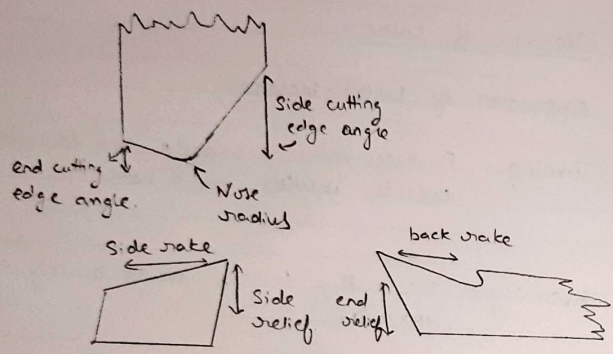 Side cutting
edge angle
end cutting
edge angle.
Nose
radius
Side rake
Side
relief
back rake
end
relief